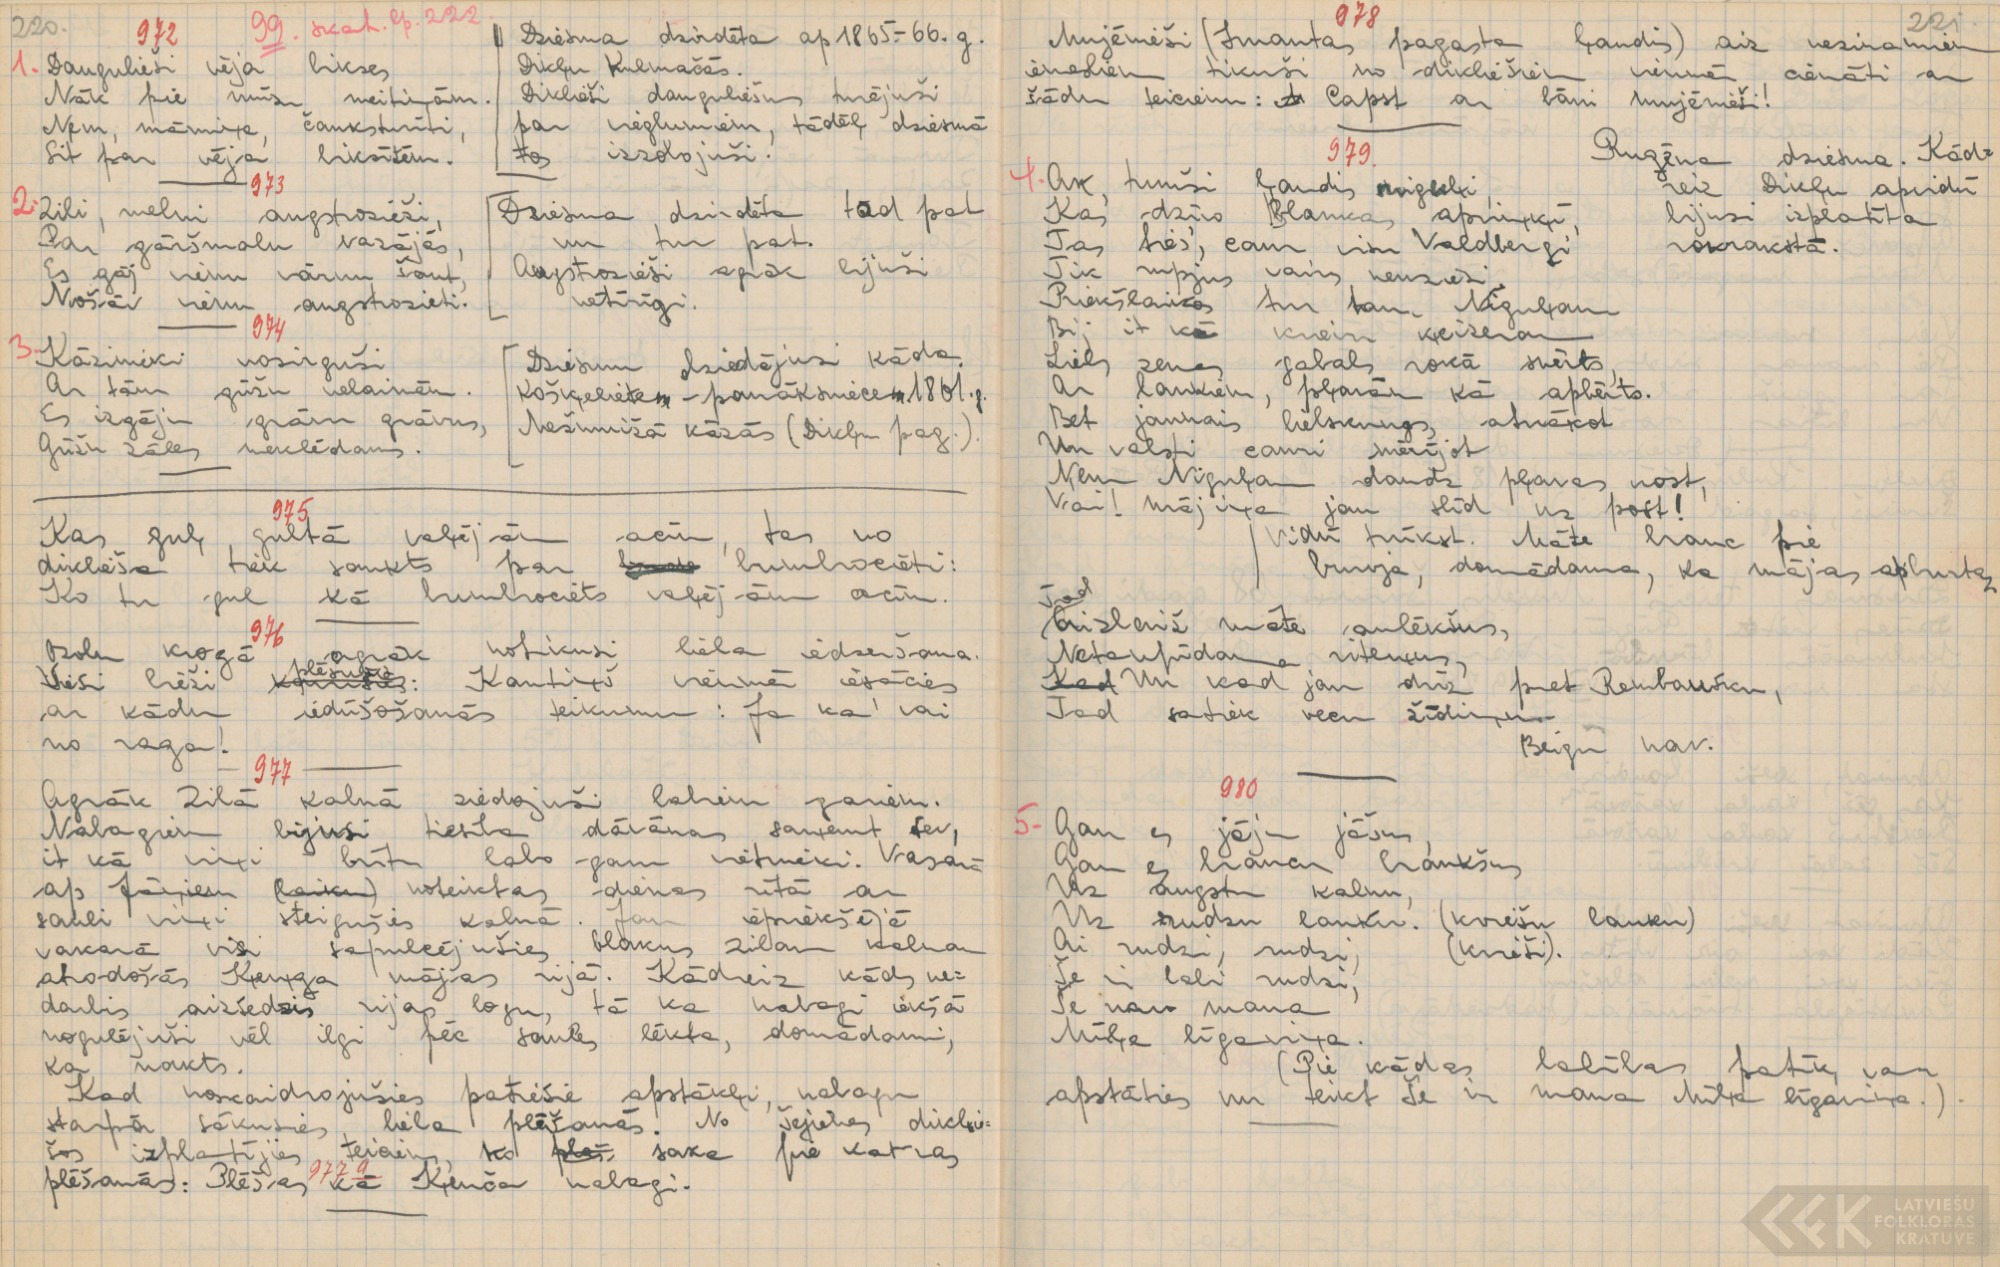 220.
972
99. skat. lp. 222.
1. Daugulieši vēja bikses
Nāk pie mūsu meitiņām.
Ņem, māmiņa, čaukstuīti,
Sit par vēja biksītēm.
Dziesma dzirdēta ap 1865-66. g.
Dikļu Kulmačās.
Diklieši dauguliešus turējuši
par viegliem, tādēļ dziesmā
tos izzobojuši.
973
2. Zili, melni augstrozieši,
Par gāršmalu vazājās,
Es gāj vienu vārnu šaut,
Nošāv' vienu augstrozieti.
Dziesma dzirdēta tad pat
un tur pat.
Augstrozieši agrāk bijuši
netīrīgi.
974
3. Kāzinieki nosirguši
Ar tām gūžu velainēm.
Es izgāju grāvu grāvus,
Gūžu zāles meklēdams.
Dziesmu dziedājusi kāda
Koškeliete - panāksniece 1861. g.
Mežmuižā kāzās (Dikļu pag.).
975
Kas guļ gultā vaļējām acīm, tas no
dikļieša tiek saukts par bumbocieti:
Ko tu gul kā bumbociets vaļējām acīm.
976
Ozolu krogā agrāk notikusi liela iedzeršana.
Visi bieži plēsušies: Kantiņš vienmē iesācies
ar kādu iedūšošanās teikumu: Ja ka' vai
no raga!
977
Agrāk Zilā kalnā ziedojuši labiem gariem.
Nabagiem bijusi tiesība dāvanas saņemt sev,
it kā viņi būtu labo garu vietnieki. Vasarā
ap Jāņiem (laiku) noteiktas dienas rītā ar
sauli viņi steigušies kalnā. Jau iepriekšējā
vakarā visi sapulcējušies blakus zilam kalnam
atrodošās Ķenča mājas rijā. Kādreiz kāds ne=
darbis aizsedzis rijas logu, tā ka nabagi iekšā
nogulējuši vēl ilgi pēc saules lēkta, domādami,
ka nakts.
Kad noskaidrojušies patiesie apstākļi, nabagu
starpā sākusies liela plēšanās. No šejienes diklie=
šos izplatījies teiciens, ko saka pie katras
plēšanās: Plēšas kā Ķenča nabagi.
977 a
221.
978
Mujēnieši (Imantas pagasta ļaudis) aiz nezināmiem
iemesliem tikuši no dikļiešiem vienmē cienāti ar
šādu teicienu: Capst ar bāni mujēnieši!
979.
Ruzēna dziesma. Kād=
reiz Dikļu apvidū
bijusi izplatīta
rokrakstā.
4. Ak, tumši ļaudis niguļi,
Kas dzīvo Blanka apriņķī,
Jās ties, caur visu Valdbergi
Tik rupjus vairs neuziesi.
Priekšlaikos tur tam Niguļam
Bij it kā kriein ķeizaram
Liels zemes gabals rokā svērts,
Ar laukiem, pļavām kā apbērts.
Bet jaunais lielskungs, atnākot
Un valsti cauri mērījot
Ņem Niguļam daudz pļavas nost,
Vai! mājiņa jau slīd uz post!
Vidū trūkst. Māte brauc pie
burvja, domādama, ka mājas apburtas
Tad
Aizlaiž māte aulēkšus,
Netaupīdama riteņus,
Un kad jau drīz pret Rembausku,
Tad satiek vecu žīdiņu.
Beigu nav.
980
5- Gan es jāju jāšus,
Gan es braucu braukšus
Uz augstu kalnu,
Uz rudzu lauku. (kviešu lauku)
Ai rudzi, rudzi, (kvieši).
Še ir labi rudzi,
Še nav mana
Mīļa līgaviņa.
(Pie kādas labības patīk var
apstāties un teikt Še ir mana Mīļa līgaviņa.).
LATVIEŠU
FOLKLORAS
KRĀTUVE